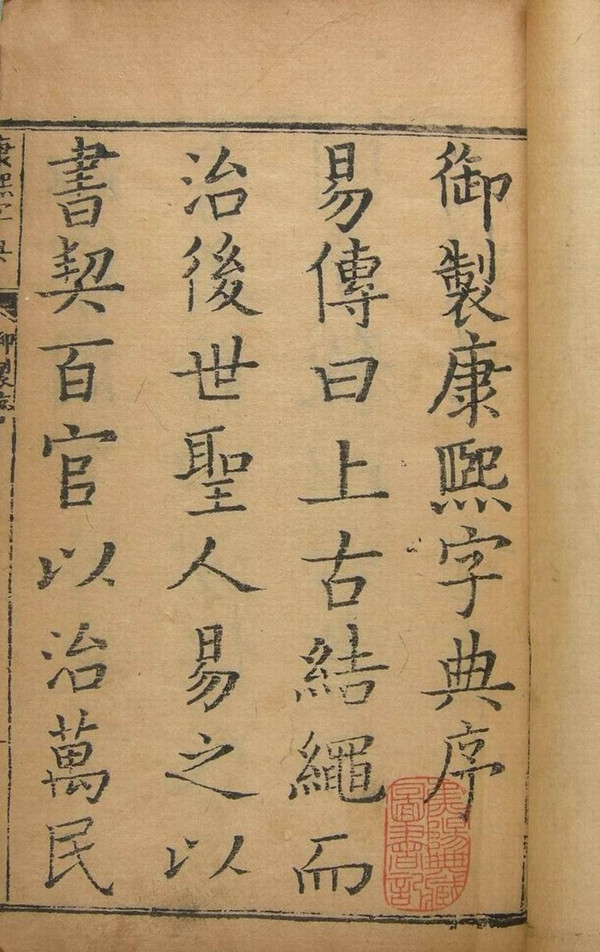 御製康熙字典序
易傳曰上古結繩而
治後世聖人易之以
書契百官以治萬民
康熙字典
御製序